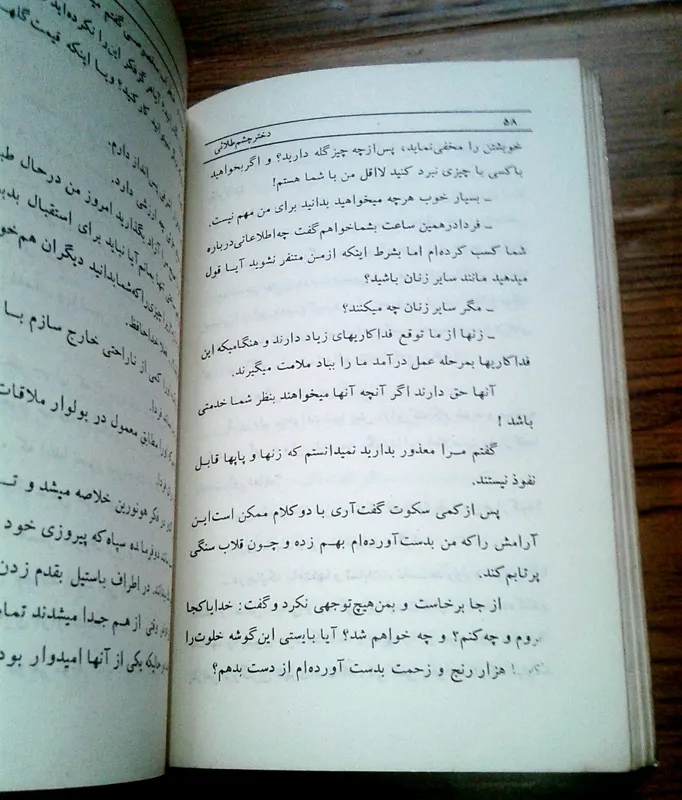 ۵۸
دختر چشم طلائی
خویشتن را مخفی نماید، پس از چه چیز گله دارید؟ و اگر بخواهید
باکسی یا چیزی نبرد کنید لااقل من با شما هستم!
ـ بسیار خوب هرچه میخواهید بدانید برای من مهم نیست.
ـ فردا درهمین ساعت بشما خواهم گفت چه اطلاعاتی درباره
شما کسب کرده‌ام اما بشرط اینکه از من متنفر نشوید آیا قول
میدهید مانند سایر زنان باشید؟
ـ مگر سایر زنان چه میکنند؟
ـ زنها از ما توقع فداکاریهای زیاد دارند و هنگامیکه این
فداکاریها بمرحله عمل درآمد ما را بباد ملامت میگیرند.
آنها حق دارند اگر آنچه آنها میخواهند بنظر شما خدمتی
باشد !
گفتم مرا معذور بدارید نمیدانستم که زنها و پاپها قابل
نفوذ نیستند.
پس از کمی سکوت گفت آری با دو کلام ممکن است این
آرامش را که من بدست آورده‌ام بهم زده و چون قلاب سنگی
پرتابم کند.
از جا برخاست و بمن هیچ توجهی نکرد و گفت: خدایا کجا
بروم و چه کنم؟ و چه خواهم شد؟ آیا بایستی این گوشه خلوت را
هزار رنج و زحمت بدست آورده‌ام از دست بدهم؟
این را نکرده‌اید
کار کنید؟ و یا اینکه قیمت
پس انداز دارم.
ارزشی دارد.
آزاد بگذارید امروز من درحال
آیا نباید برای استقبال
چیزی را که شما بدانید دیگران هم
خداحافظ.
را کمی از ناراحتی خارج سازم با
فردا.
مطابق معمول در بولوار ملاقات
فکر هونورین خلاصه میشد و
دو فرمانده سپاه که پیروزی خود
در اطراف باستیل بقدم زدن
وقتی از هم جدا میشدند
یکی از آنها امیدوار بود